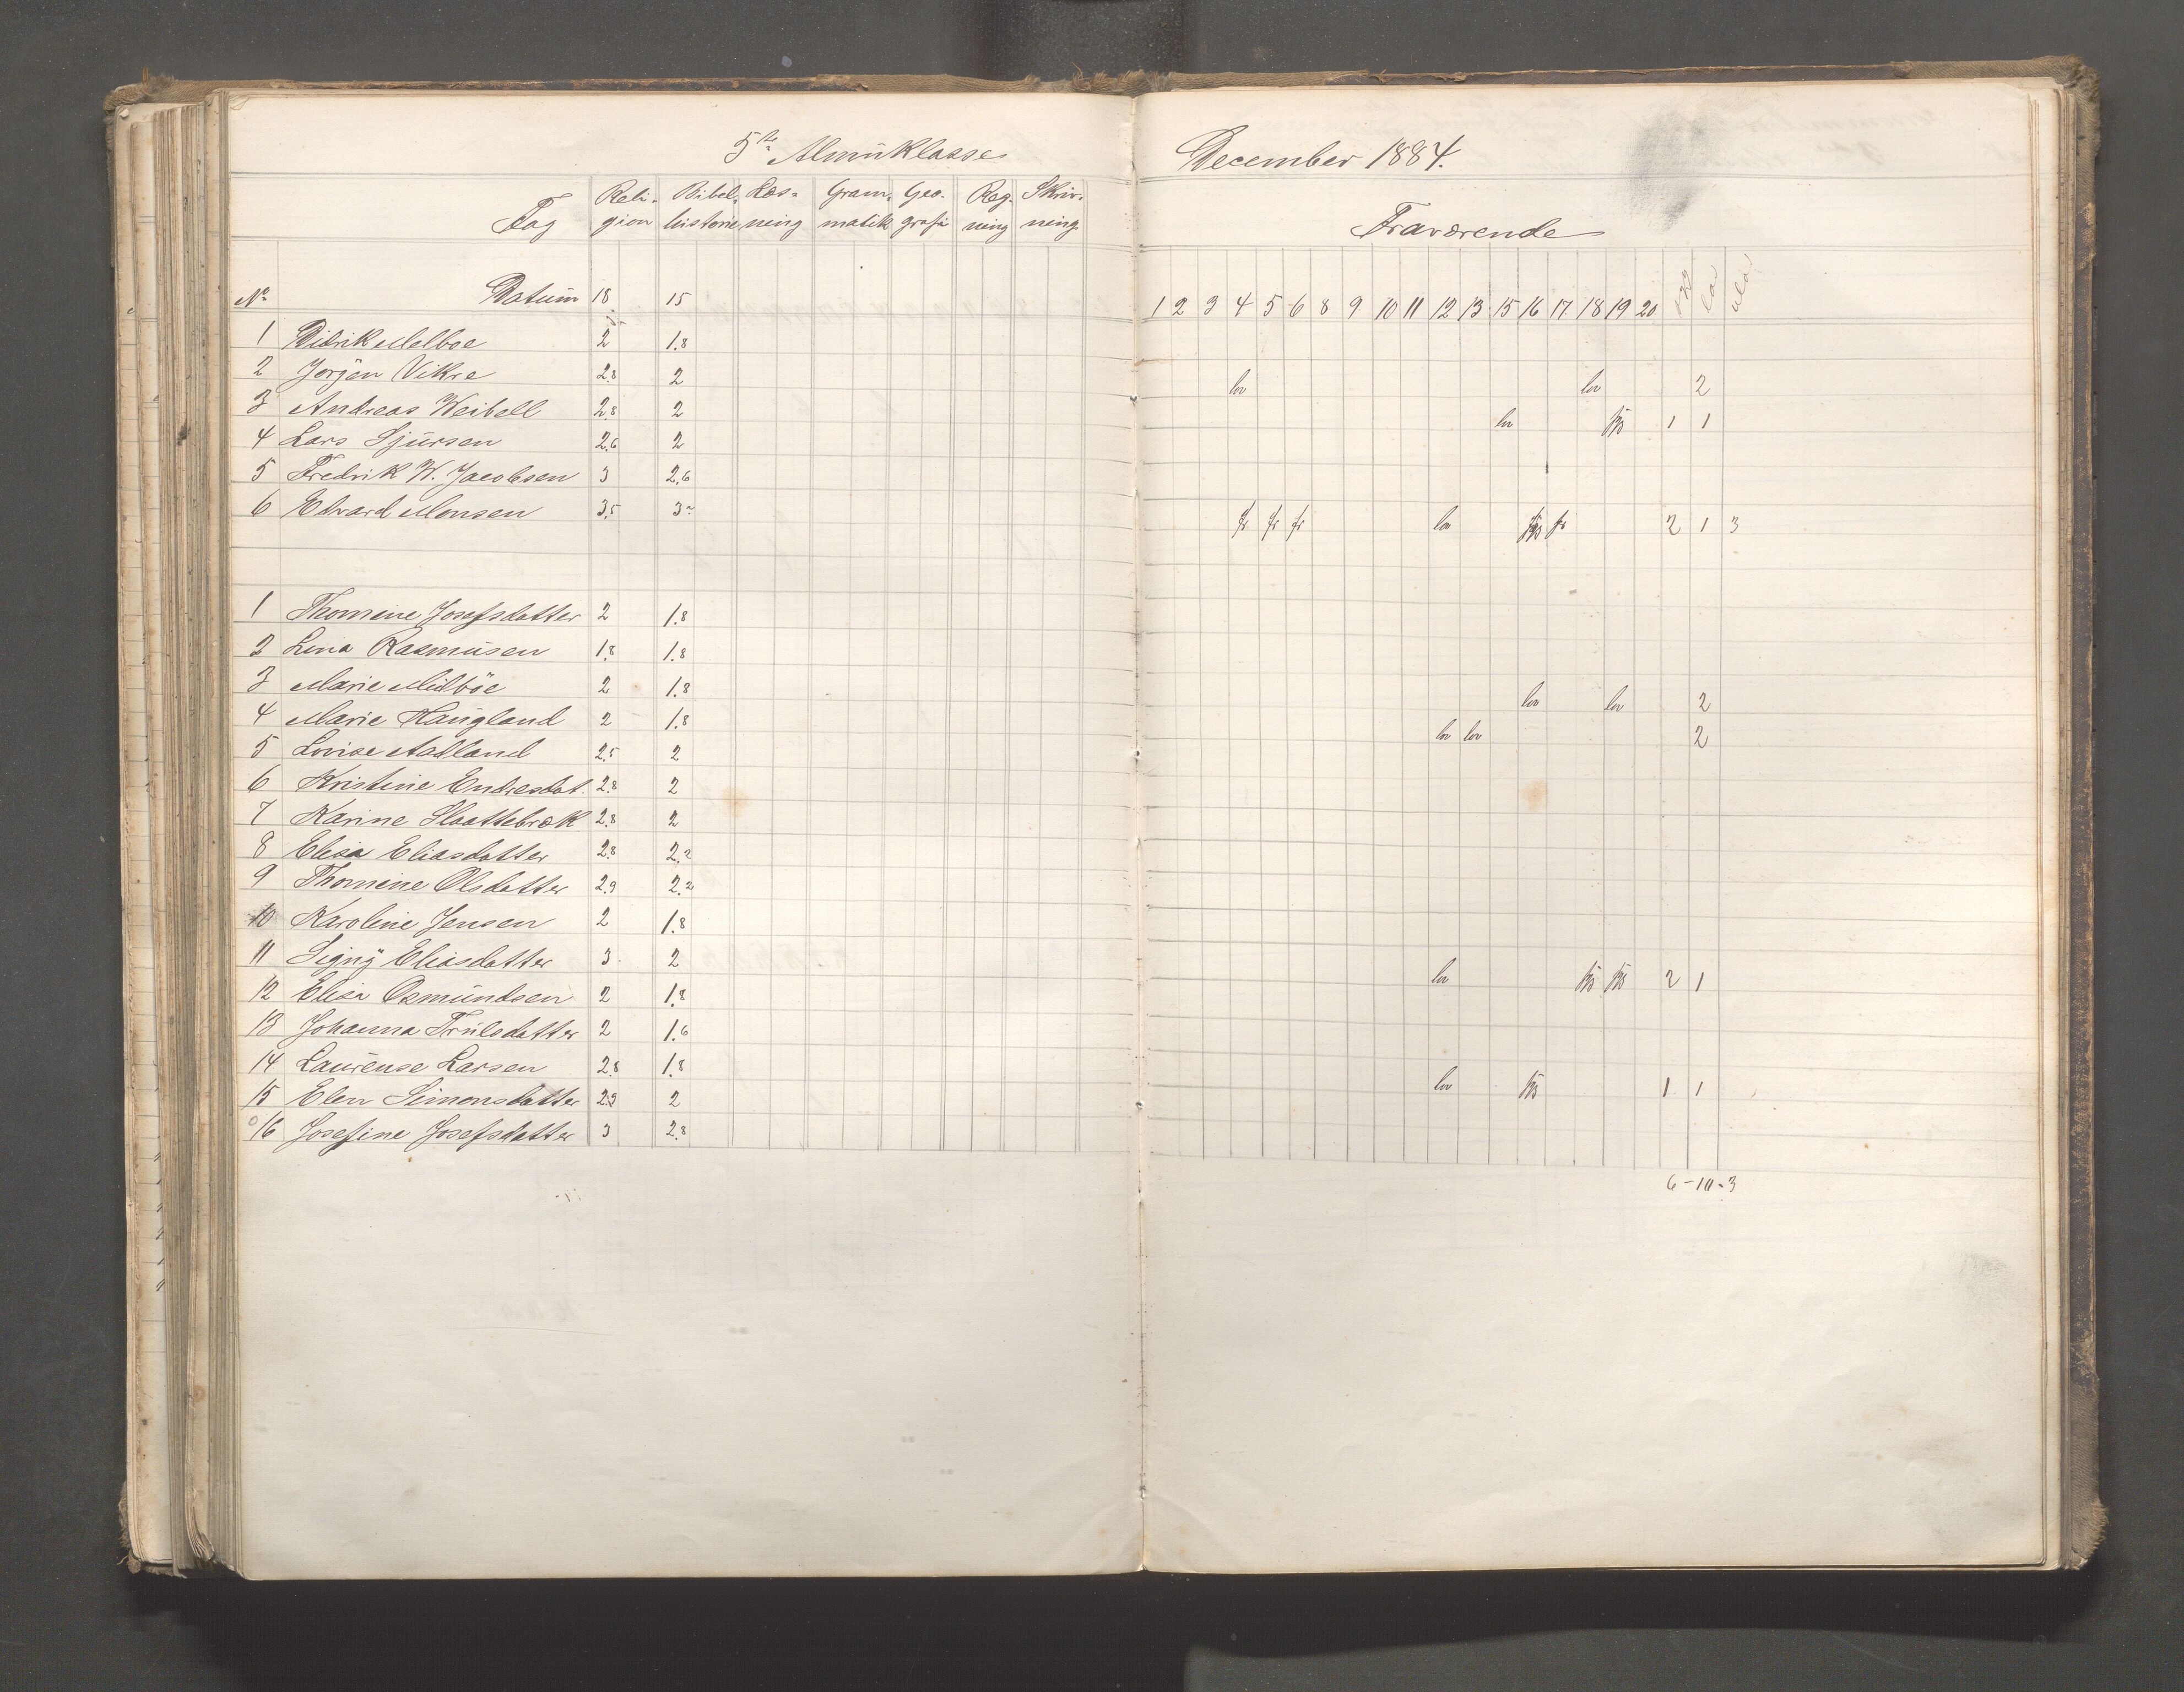 5te Almuklasse
Fag Reli- Bibel- Læs- Gram- Geo- Reg- Skriv-
gion historie ning matik grafi ning ning
No Datum 18 15
1 Didrik Melboe 2 1.8
2 Jørgen Vikre 2.8 2
3 Andreas Weibell 2.8 2
4 Lars Sjursen 2.6 2
5 Fredrik W. Jacobsen 3 2.6
6 Edvard Monsen 3.5 3
1 Thomine Josefsdatter 2 1.8
2 Lina Rasmusen 1.8 1.8
3 Marie Midböe 2 1.8
4 Marie Haugland 2 1.8
5 Lovise Aadland 2.5 2
6 Kristine Endresdat. 2.8 2
7 Karine Slaattebræk 2.8 2
8 Elisa Eliasdatter 2.8 2.2
9 Thomine Olsdatter 2.9 2.2
10 Karoline Jensen 2 1.8
11 Signy Eliasdatter 3. 2
12 Elisa Osmundsen 2 1.8
13 Johanna Trulsdatter 2 1.6
14 Laurense Larsen 2.8 1.8
15 Elen Simonsdatter 2.9 2
16 Josefine Josefsdatter 3 2.8
December 1884.
Fraværende
1 2 3 4 5 6 8 9 10 11 12 13 15 16 17 18 19 20 lov
lov lov 2
lov 1 1
fr fr fr lov fr 2 1 3
lov lov 2
lov lov 2
lov 2 1
lov 1 1
6-10-3